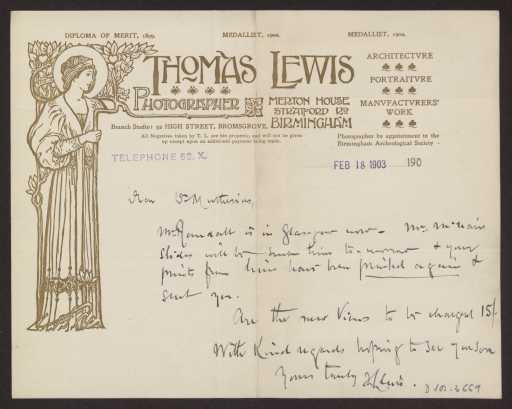 DIPLOMA OF MERIT, 1899.
MEDALLIST, 1900.
MEDALLIST, 1902.
THOMAS LEWIS
PHOTOGRAPHER
MERTON HOUSE
STRATFORD RD
BIRMINGHAM
ARCHITECTVRE
PORTRAITVRE
MANVFACTVRERS'
WORK
Branch Studio: 92 HIGH STREET, BROMSGROVE.
All Negatives taken by T. L. are his property, and will not be given
up except upon an additional payment being made.
Photographer by appointment to the
Birmingham Archæological Society
TELEPHONE 62. X.
FEB 18 1903
190
Dear
Mr is in Glasgow now - Mr.
Slides will be him to-morrow & your
prints from have been printed again &
sent you.
Are the new Views to be charged 15/-
With Kind regards hoping to see you soon
Yours truly T Lewis.